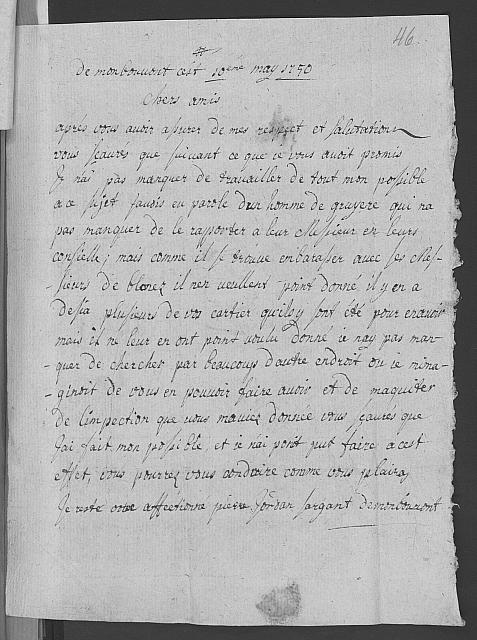 46
De monbouont cest 10eme may 1750
Chers amis
apres vous avoir assurer de mes respect et salutation
vous scaurés que suivant ce que ie vous avoit promis
Je nai pas manquer de travailler de tout mon possible
a ce sujet J'avois eu parole d'un homme de gruyere qui na
pas manquer de le rapporter a leur Messieur en leurs
conseille; mais comme il se trouve embarasser avec les Mes-
-sieurs de blonez il nen veullent point donné il y en a
desia plusieurs de vos cartier qui loy sont été pour en avoir
mais il ne leur en ont point voulu donné ie nay pas man-
-quer de chercher par beaucoups d'autre endroit ou ie mima-
-ginoit de vous en pouvoir faire avoir et de maquiter
De l'impection que vous maviez donnee vous scaures que
Jai fait mon possible, et ie nai point put faire a cest
effet, vous pourrez vous conduire comme vous plaira,
Je reste votre affectionne pierre Jordan sargant demonbouont